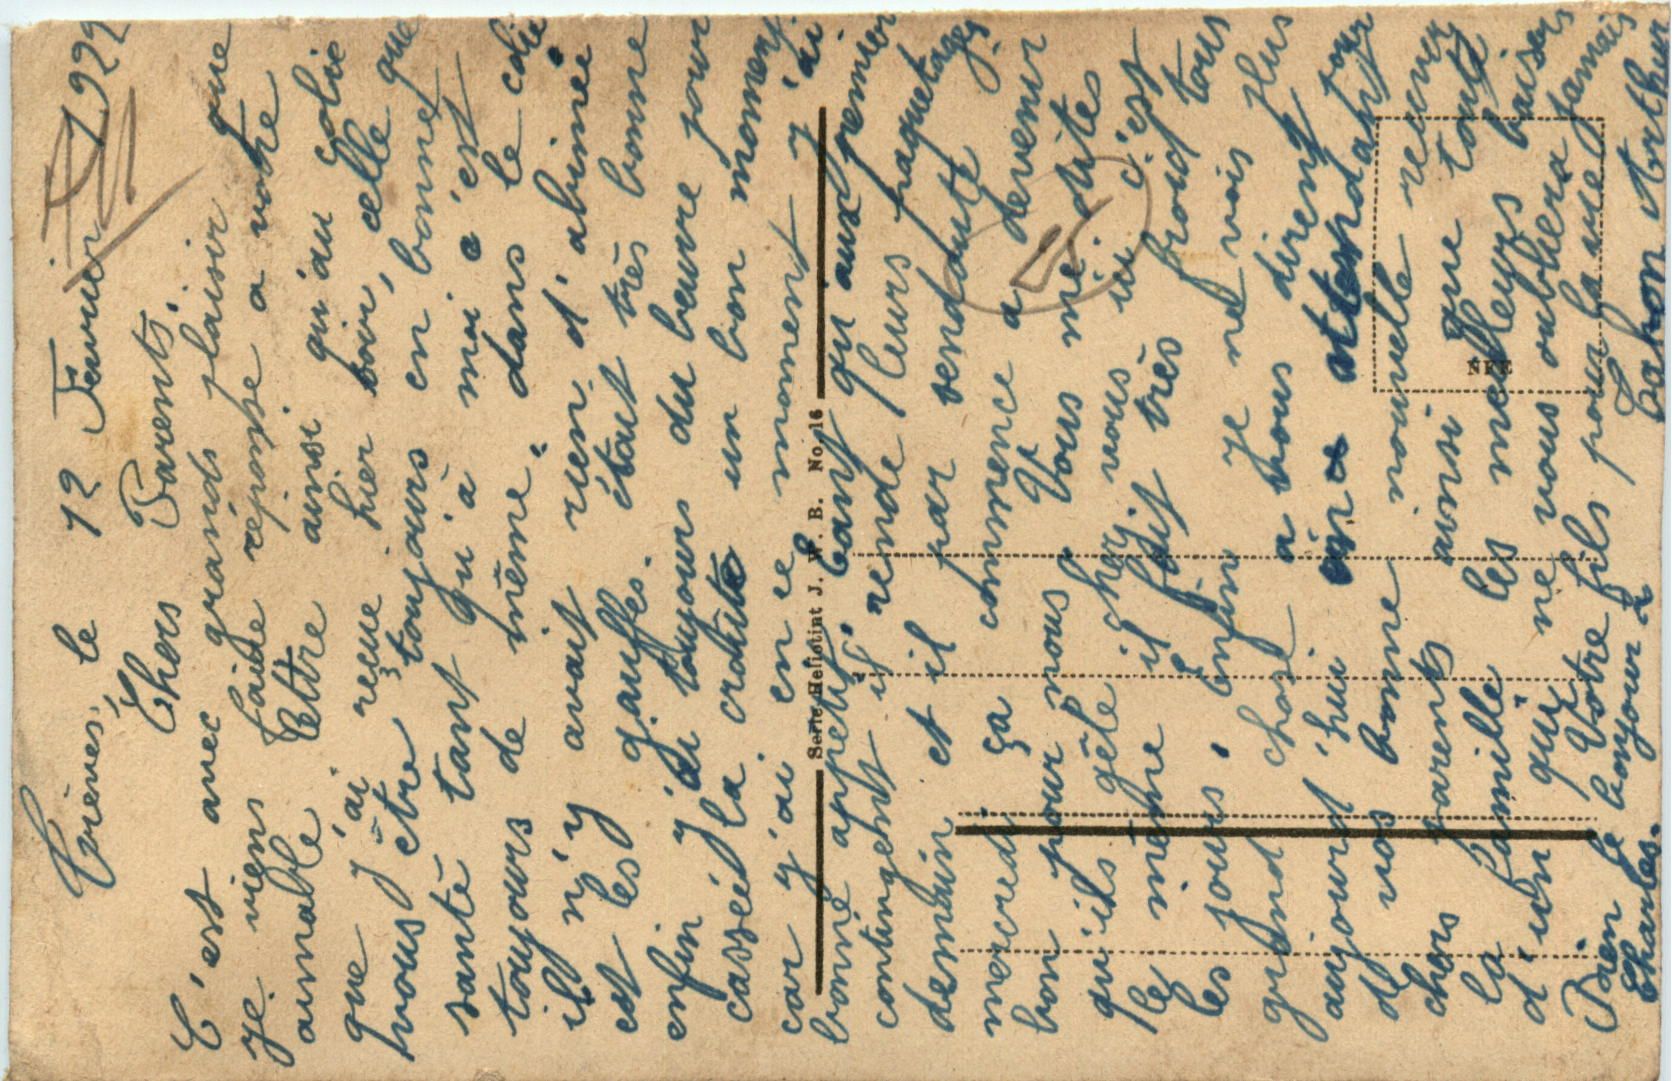 Trèves, le 12 Fevrier 1922
Chers Parents,
C'est avec grands plaisir que
je viens faire réponse a votre
aimable lettre ainsi qu'au colie
que j'ai reçue hier soir, celle que
vous être toujours en bonne
santé tant qu'à moi c'est
toujours de même. dans le colie
il n'y avait rien d'abimée
est les gauffes. était très bonne
enfin j'ai toujours du beurre pour
cassée la croûte un bon moment
car j'ai en ce moment j'ai
bonne apetit. Tant qu aux premier
contingent il rende leurs paquetages
demain et il par sendoute
mercredi ça commence a devenir
bon pour nous Vous me dites
qu'ils gêle chez vous ici c'est
le même il fait très froid tous
les jours, enfin je ne vois plus
grand chose a vous dirent pour
aujourd'hui en attendant
de vos bonne nouvelle recever
chers parents ainsi que toute
la famille les meilleurs baisers
d'un qui ne vous oubliera jamais
Votre fils pour la vie
Bien le bonjour à Tabon Arthur
Charles.
Serie Heliotint J. W. B. No 16
NFE